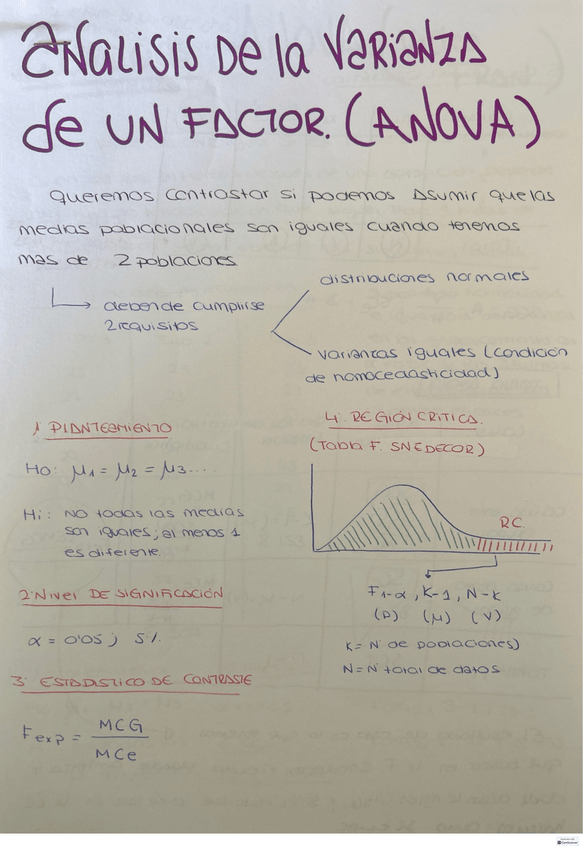 ANALISIS DE la VARIANZA
de UN FACTOR. (ANOVA)
queremos contrastar si podemos asumir que las
medias poblacionales son iguales cuando tenemos
mas de 2 poblaciones
→ deben de cumplirse
2 requisitos
distribuciones normales
varianzas iguales (condición
de homocedasticidad)
1. PLANTEAMIENTO
Ho: μ1 = μ2 = μ3...
Hi: NO todas las medias
son iguales; al menos 1
es diferente.
2. Nivel DE SIGNIFICACIÓN
α = 0'05 ; 5%.
3. ESTADISTICO DE CONTRASTE
Fexp = MCG
MCe
4. REGIÓN CRITICA.
(Tabla F. SNEDECOR)
R.C.
F1-α , K-1 , N-K
(P) (μ) (V)
K = Nº de poblaciones)
N = Nº total de datos